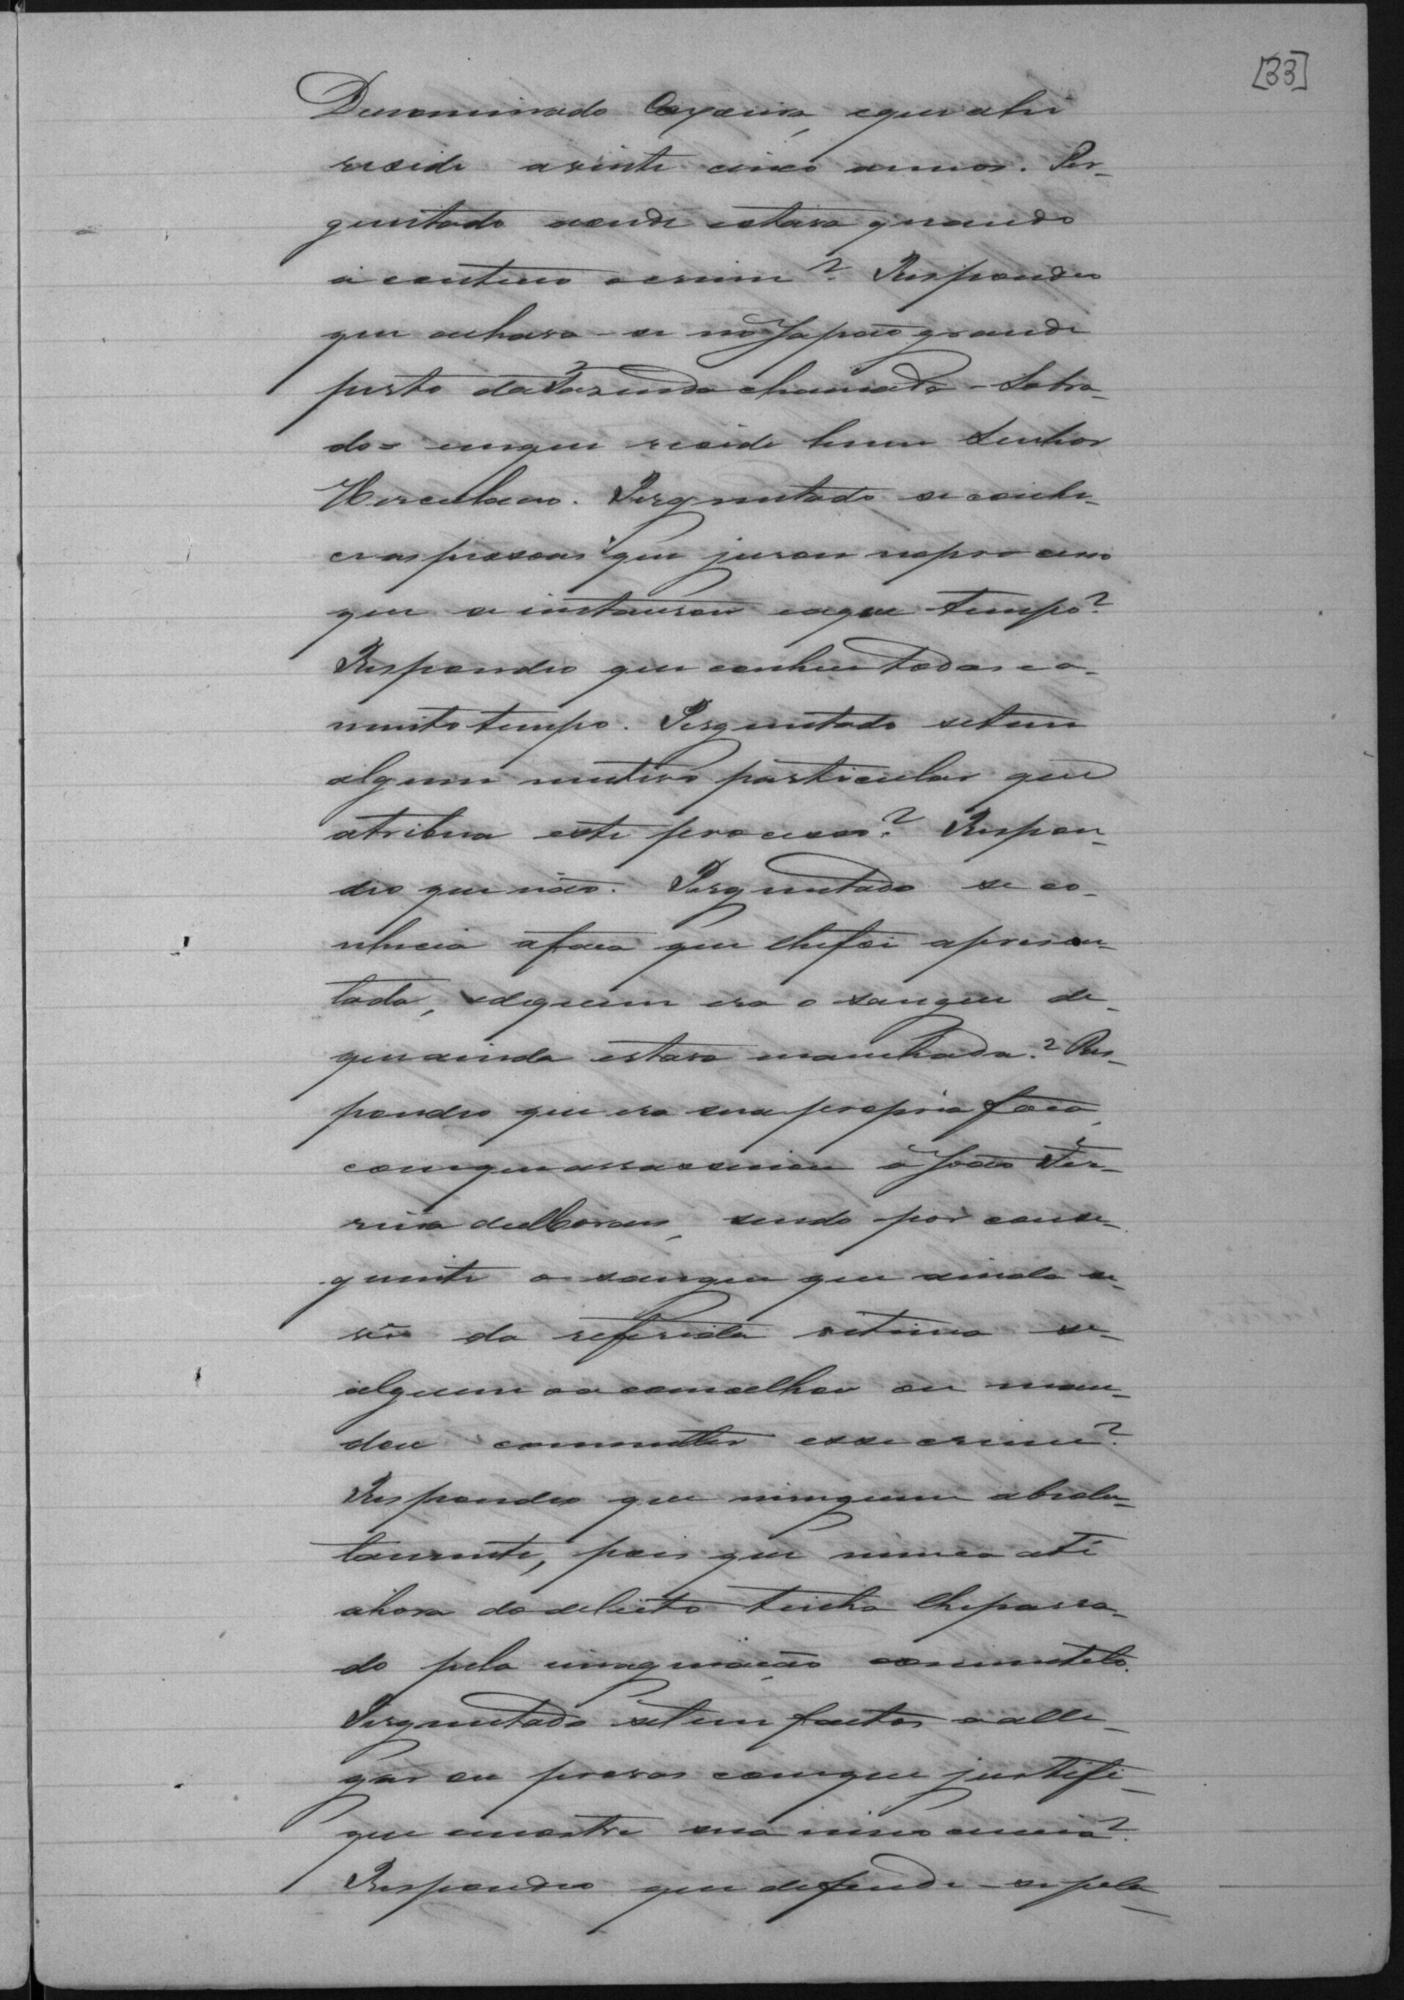 [33]
Denominado Caxeira, eque ahi
reside a vinte cinco annos. Per-
guntado aonde estava quando
a conteceo o crime? Respondeo
que achava-se no Japão grande
perto da Fazenda chamada - Sobra-
do = em que reside hum Senhor
Herculano. Perguntado se conhe-
ce as pessoas que juraou no processo
que se instaurou e a que tempo?
Respondeo que conhece todas e a
muito tempo. Perguntado se tem
algum mutivo particular que
atribua este processo? Respon-
deo que não. Perguntado se co-
nhecia a faca que lhe foi apresen-
tada, e de quem era o sangue de
que ainda estava manchada? Res-
pondeo que era sua propria faca,
com que assassinou a João Fer-
reira de Moraes, sendo por conse-
guinte o sangue que ainda se
vê da referida vitima se
alguem o aconselhou ou man-
dou committer esse crime?
Respondeo que ninguem absolu-
tamente, pois que nunca até
ahora do delicto tinha lhe passa-
do pela imaginação commetelo.
Perguntado se tem factos a alle-
gar ou provas com que justifi-
que e mostre sua innocencia?
Respondeo que defende-se pela